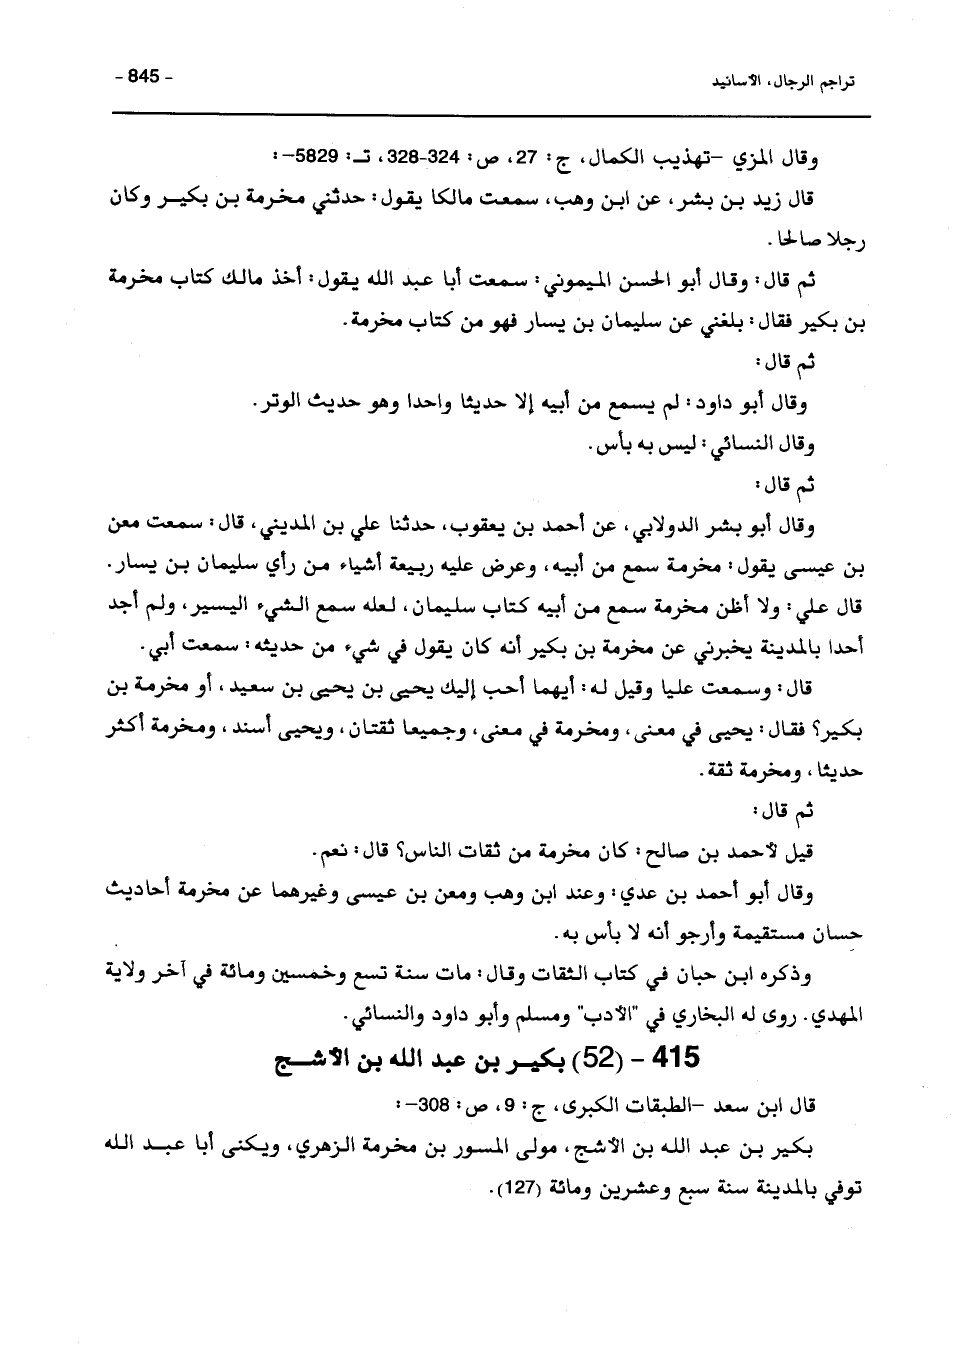 تراجم الرجال، الأسانيد
- 845 -
وقال المزي –تهذيب الكمال، ج: 27، ص: 324-328، تـ: 5829–:
قال زيد بن بشر، عن ابن وهب، سمعت مالكا يقول: حدثني مخرمة بن بكير وكان
رجلا صالحا.
ثم قال: وقال أبو الحسن الميموني: سمعت أبا عبد الله يقول: أخذ مالك كتاب مخرمة
بن بكير فقال: بلغني عن سليمان بن يسار فهو من كتاب مخرمة.
ثم قال:
وقال أبو داود: لم يسمع من أبيه إلا حديثا واحدا وهو حديث الوتر.
وقال النسائي: ليس به بأس.
ثم قال:
وقال أبو بشر الدولابي، عن أحمد بن يعقوب، حدثنا علي بن المديني، قال: سمعت معن
بن عيسى يقول: مخرمة سمع من أبيه، وعرض عليه ربيعة أشياء من رأي سليمان بن يسار.
قال علي: ولا أظن مخرمة سمع من أبيه كتاب سليمان، لعله سمع الشيء اليسير، ولم أجد
أحدا بالمدينة يخبرني عن مخرمة بن بكير أنه كان يقول في شيء من حديثه: سمعت أبي.
قال: وسمعت عليا وقيل له: أيهما أحب إليك يحيى بن يحيى بن سعيد، أو مخرمة بن
بكير؟ فقال: يحيى في معنى، ومخرمة في معنى، وجميعا ثقتان، ويحيى أسند، ومخرمة أكثر
حديثا، ومخرمة ثقة.
ثم قال:
قيل لأحمد بن صالح: كان مخرمة من ثقات الناس؟ قال: نعم.
وقال أبو أحمد بن عدي: وعند ابن وهب ومعن بن عيسى وغيرهما عن مخرمة أحاديث
حسان مستقيمة وأرجو أنه لا بأس به.
وذكره ابن حبان في كتاب الثقات وقال: مات سنة تسع وخمسين ومائة في آخر ولاية
المهدي. روى له البخاري في "الأدب" ومسلم وأبو داود والنسائي.
415 - (52) بكير بن عبد الله بن الأشج
قال ابن سعد –الطبقات الكبرى، ج: 9، ص: 308–:
بكير بن عبد الله بن الأشج، مولى المسور بن مخرمة الزهري، ويكنى أبا عبد الله
توفي بالمدينة سنة سبع وعشرين ومائة (127).